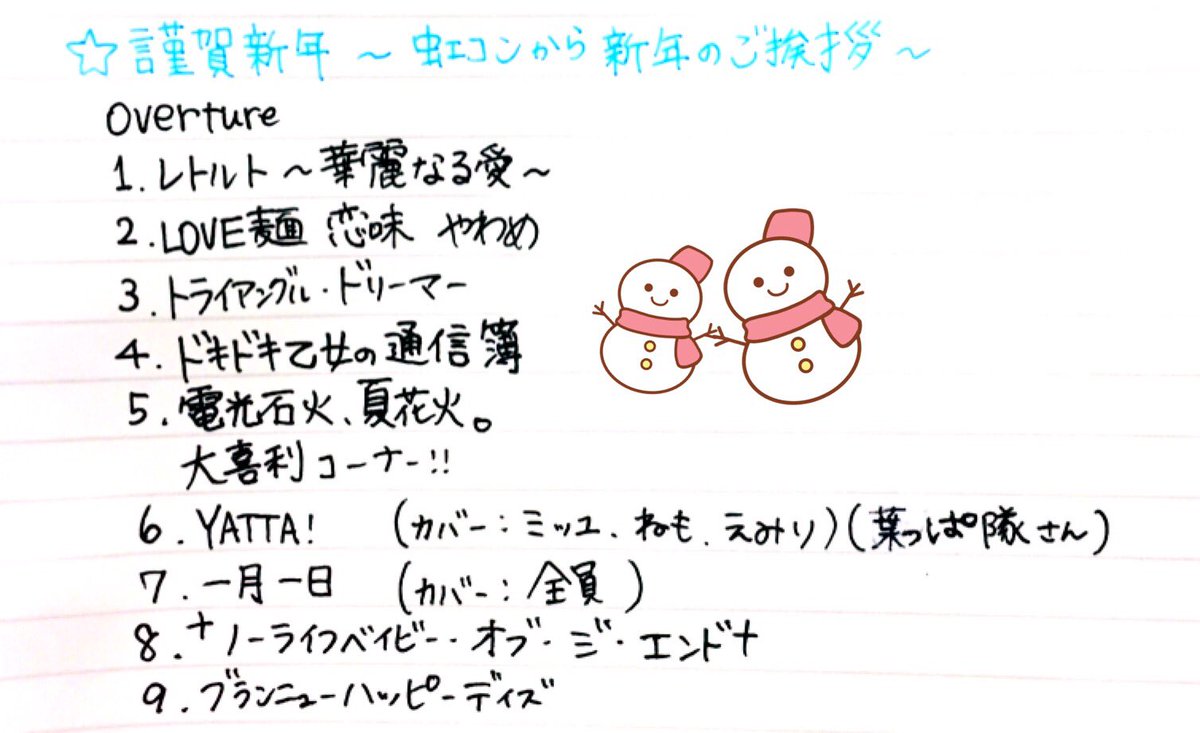 ☆謹賀新年 ～虹コンから新年のご挨拶～
Overture
1. レトルト～華麗なる愛～
2. LOVE麺 恋味 やわめ
3. トライアングル・ドリーマー
4. ドキドキ乙女の通信簿
5. 電光石火、夏花火。
大喜利コーナー!!
6. YATTA! (カバー：ミッユ、ねも、えみり)(葉っぱ隊さん)
7. 一月一日 (カバー：全員)
8. †ノーライフベイビー・オブ・ジ・エンド†
9. ブランニューハッピーデイズ